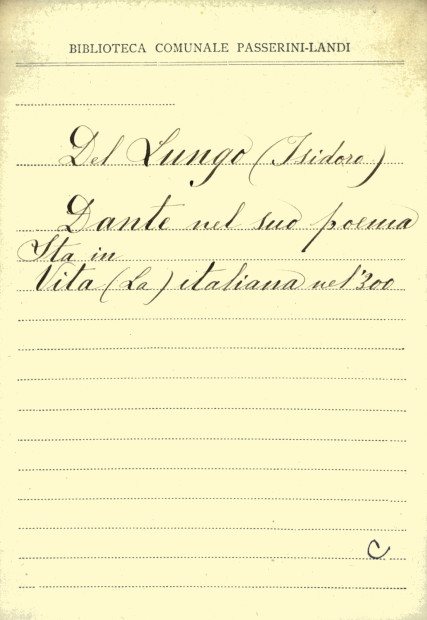 BIBLIOTECA COMUNALE PASSERINI-LANDI
Del Lungo (Isidoro)
Dante nel suo poema
Sta in
Vita (La) italiana nel '300
C